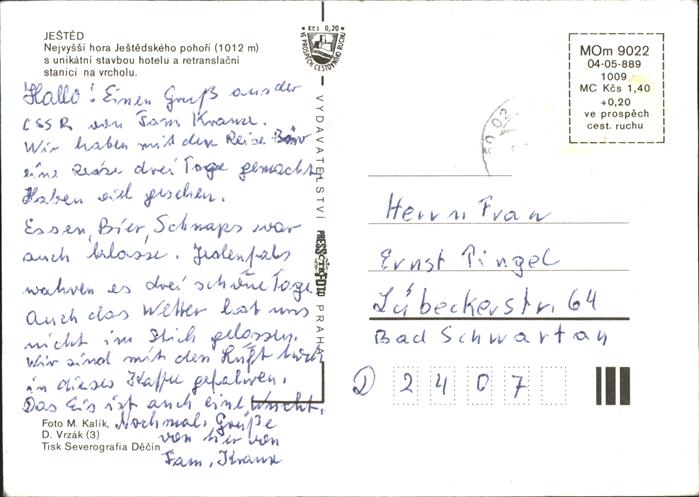 JEŠTĚD
Nejvyšší hora Ještědského pohoří (1012 m)
s unikátní stavbou hotelu a retranslační
stanicí na vrcholu.
Kčs 0,20
VE PROSPĚCH CESTOVNÍHO RUCHU
MOm 9022
04-05-889
1009
MC Kčs 1,40
+0,20
ve prospěch
cest. ruchu
Hallo! Einen Gruß aus der
CSSR von Fam Kranz.
Wir haben mit dem Reise Büro
eine drei Tage gemacht
Haben viel gesehen.
Essen, Bier, Schnaps war
auch klasse. Jedenfals
wahren es drei schöne Tage
Auch das Wetter hat uns
nicht im Stich gelassen.
Wir sind mit den Lift
in dieses Kaffee gefahren.
Das Eis ist auch eine Wucht.
Nochmals Grüße
von hier von
Fam. Kranz
VYDAVATELSTVÍ PRESSFOTO PRAHA
Herrn Frau
Ernst Pingel
Lübeckerstr. 64
Bad Schwartau
D 2407
Foto M. Kalík,
D. Vrzák (3)
Tisk Severografia Děčín